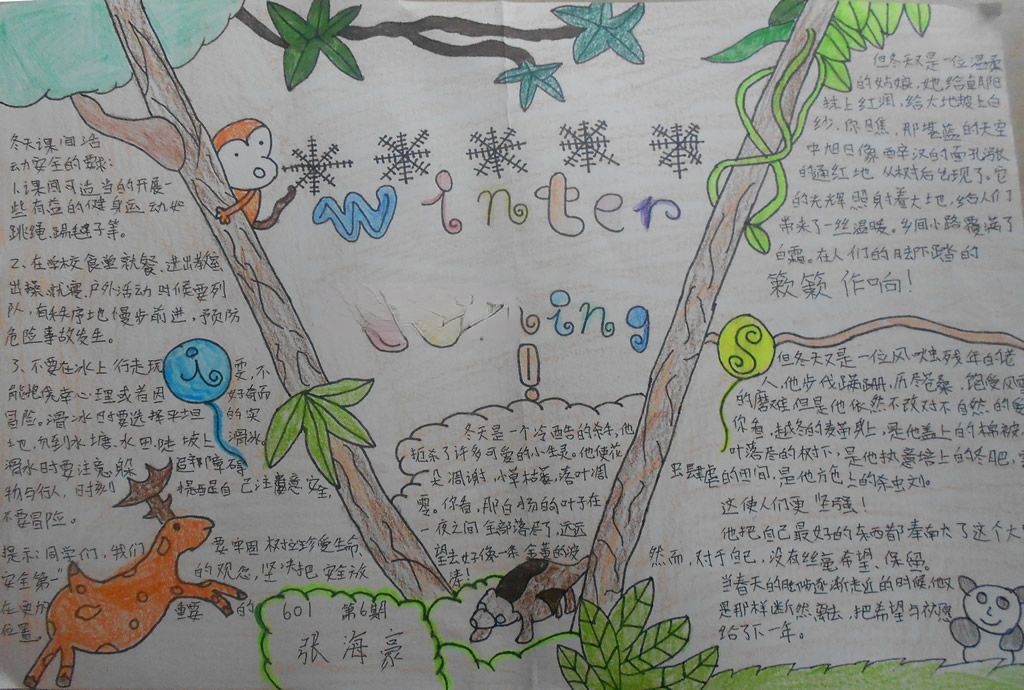 Winter
ing
!
冬天课间活
动安全的要求:
1.课间可适当的开展一
些有益的健身运动如
跳绳、踢毽子等。
2、在学校食堂就餐、进出教室
出操、就寝、户外活动时候要列
队,有秩序地慢步前进,预防
危险事故发生。
3、不要在冰上行走玩 i 耍,不
能抱侥幸心理或者因 好奇而
冒险。滑冰时要选择平坦 的实
地,勿到水塘、水田、陡坡上滑冰。
滑冰时要注意躲 避障碍
物与行人,时刻 提醒自己注意安全,
不要冒险。
提示:同学们,我们 要牢固树立珍爱生命,
安全第一 的观念,坚决把安全放
在更加 重要的
位置。
冬天是一个冷酷的杀手,他
扼杀了许多可爱的小生灵。他使花
朵凋谢,小草枯萎,落叶凋
零。你看,那白杨的叶子在
一夜之间全部落尽了,远远
望去好像一条金黄的波
涛!
601 第6期
张海豪
但冬天又是一位温柔
的姑娘,她给朝阳
抹上红润,给大地披上白
纱,你瞧,那湛蓝的天空
中旭日像西辛汉的面孔般
的通红地从树后出现了。它
的光辉照射着大地,给人们
带来了一丝温暖。乡间小路覆满了
白霜。在人们的脚下踏的
簌簌作响!
S
但冬天又是一位风吹残年的老
人,他步伐蹒跚,历尽沧桑、饱受风雪
的磨难,但是他依然不改对大自然的
你看,越冬的麦苗身上,是他盖上的棉被,
叶落尽的树下,是他执意培上的冬肥,
虫肆虐的田间,是他亦色上的杀虫剂。
这使人们更坚强!
他把自己最好的东西都奉献大了这个大
然而,对于自己,没有丝毫希望、保留。
当春天的脚步逐渐走近的时候,他又
是那样断然离去,把希望与祝愿
给了下一年。